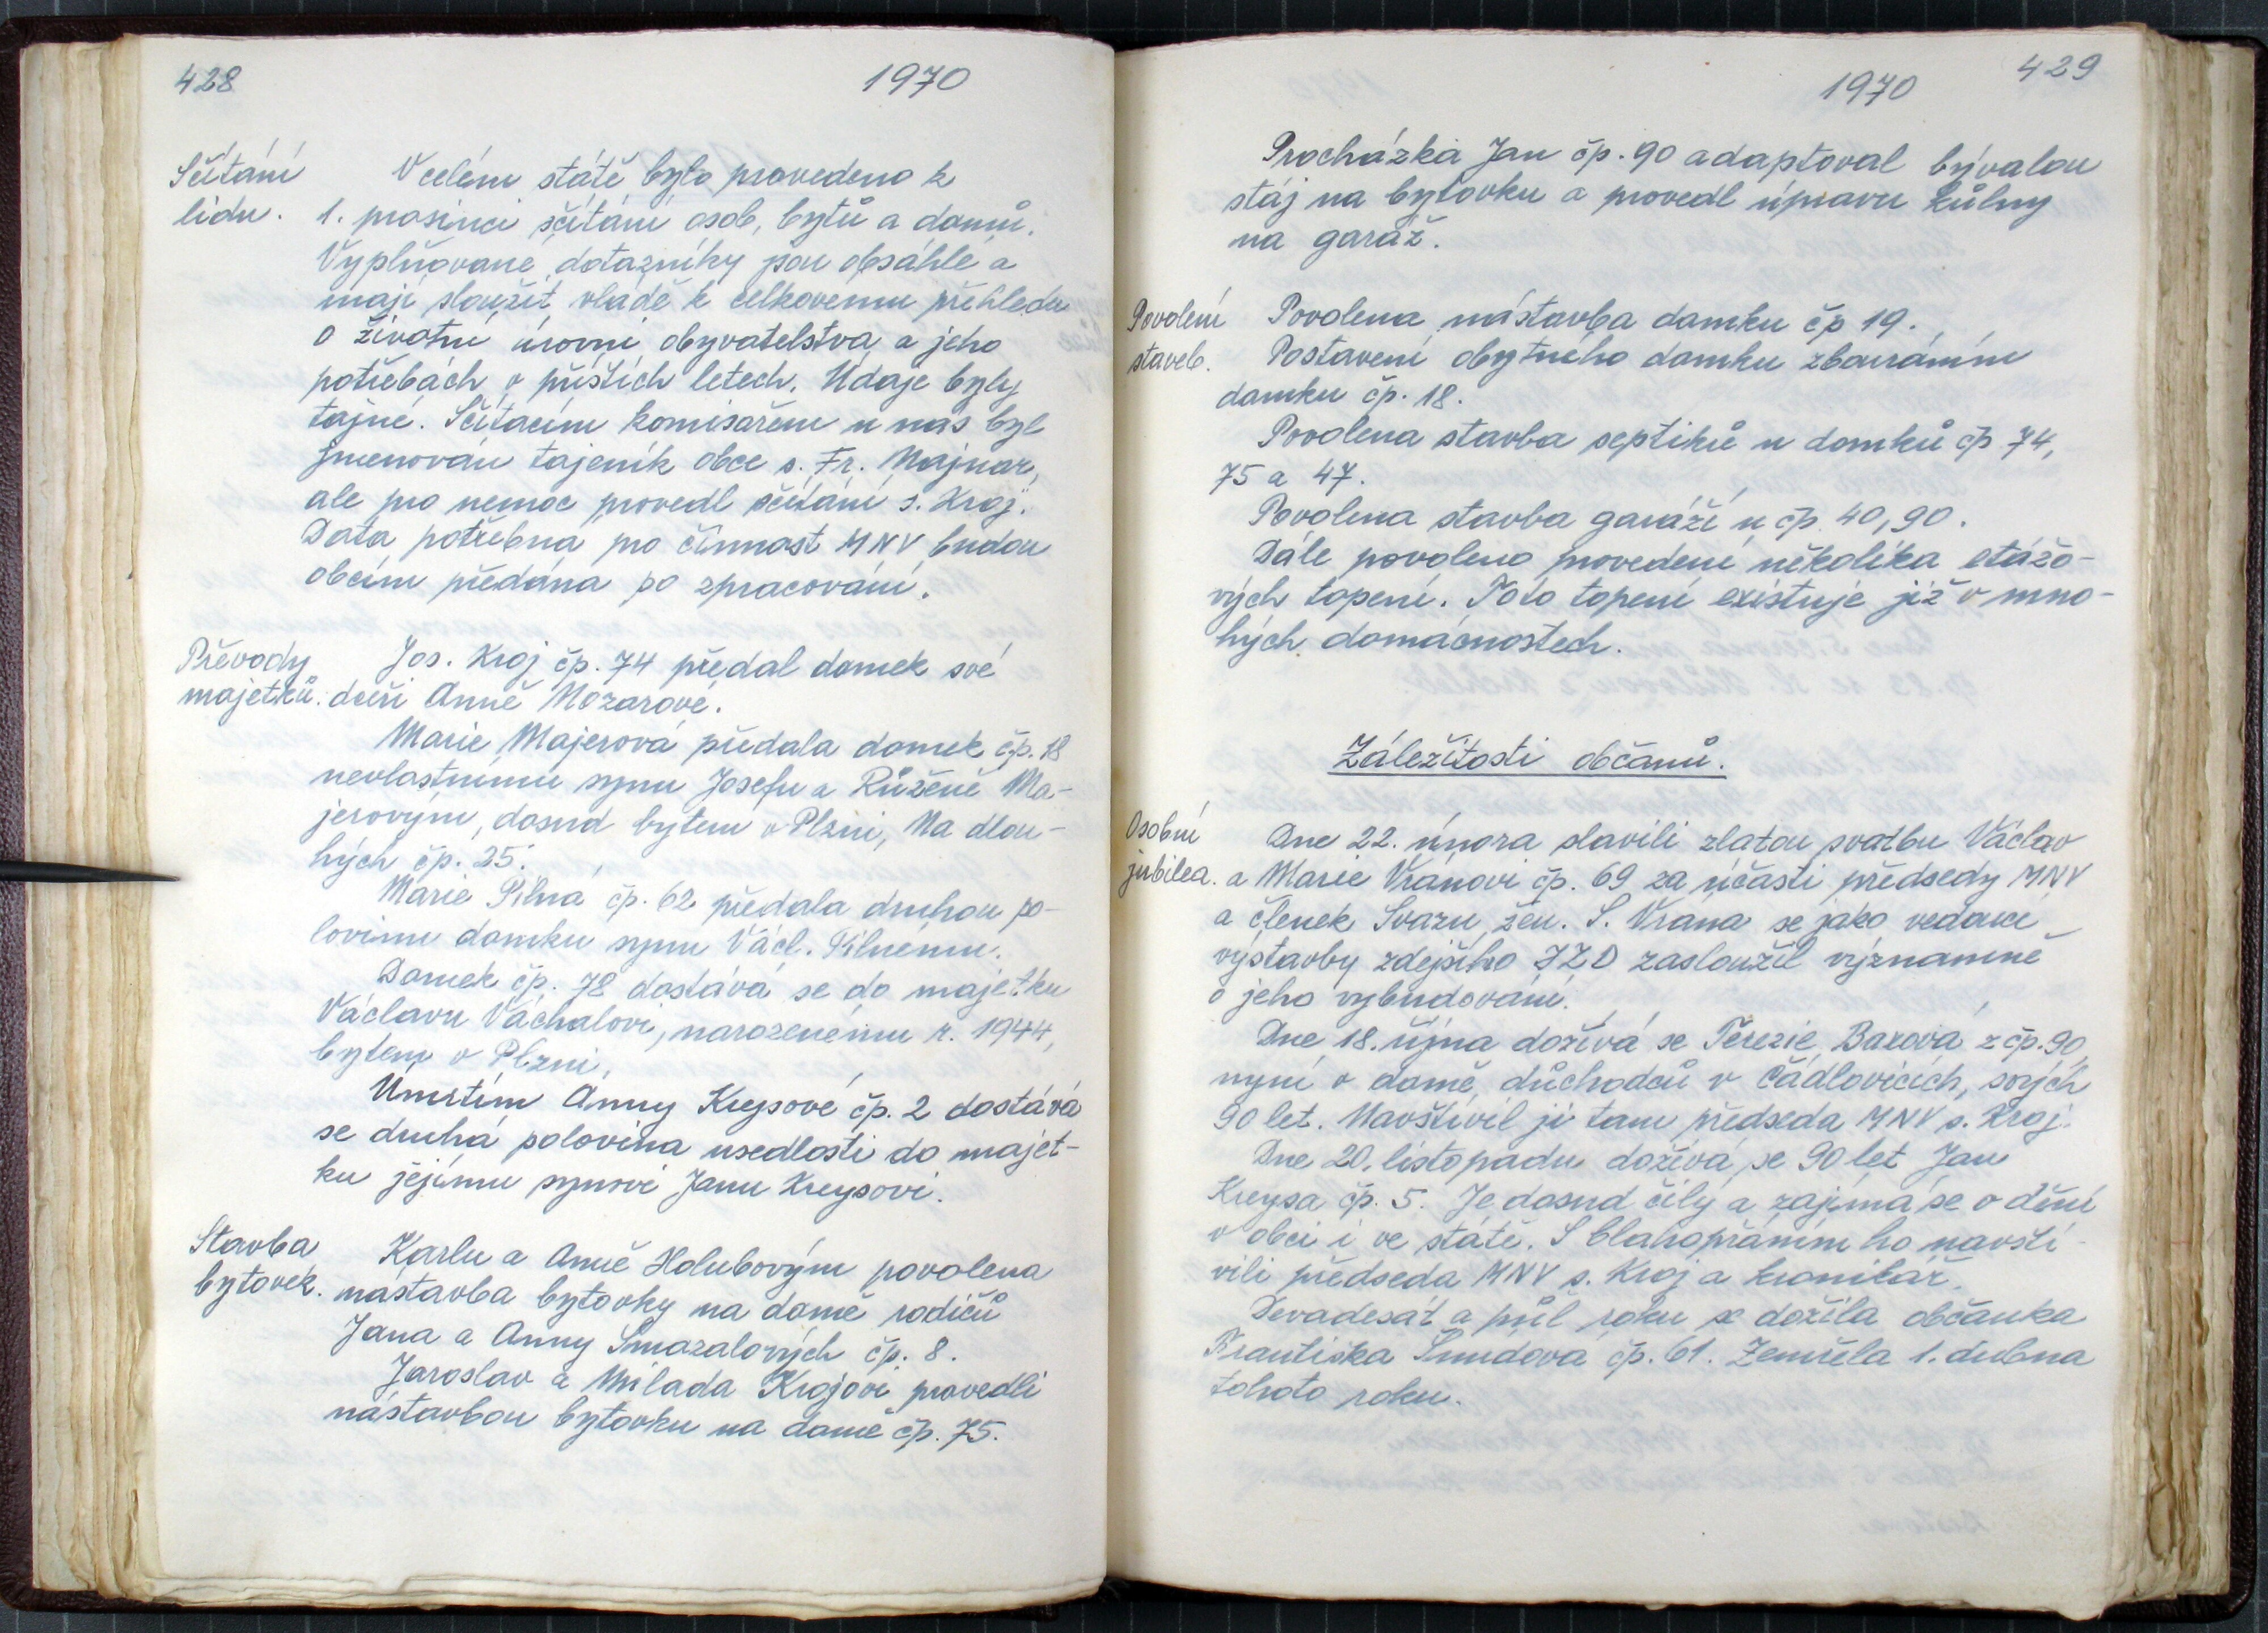 428
1970
Sčítání
lidu.
V celém státě bylo provedeno k
1. prosinci sčítání osob, bytů a domů.
Vyplňované dotazníky jsou obsáhlé a
mají sloužit vládě k celkovému přehledu
o životní úrovni obyvatelstva a jeho
potřebách v příštích letech. Údaje byly
tajné. Sčítacím komisařem u nás byl
jmenován tajemník obce s. Fr. Majnar,
ale pro nemoc provedl sčítání s. Kroj.
Data potřebná pro činnost MNV budou
obcím předána po zpracování.
Převody
majetků.
Jos. Kroj čp. 74 předal domek své
dceři Anně Mozarové.
Marie Majerová předala domek čp. 18
nevlastnímu synu Josefu a Růženě Ma-
jerovým, dosud bytem v Plzni, Na dlou-
hých čp. 25.
Marie Pilná čp. 62 předala druhou po-
lovinu domku synu Václ. Pilnému.
Domek čp. 78 dostává se do majetku
Václavu Váchalovi, narozenému r. 1944,
bytem v Plzni.
Úmrtím Anny Kreysové čp. 2 dostává
se druhá polovina usedlosti do majet-
ku jejímu synovi Janu Kreysovi.
Stavba
bytovek.
Karlu a Anně Holubovým povolena
nástavba bytovky na domě rodičů
Jana a Anny Smazalových čp. 8.
Jaroslav a Milada Krojovi provedli
nástavbou bytovku na domě čp. 75.
1970
429
Procházka Jan čp. 90 adaptoval bývalou
stáj na bytovku a provedl úpravu kůlny
na garáž.
Povolení
staveb.
Povolena nástavba domku čp 19.
Postavení obytného domku zbouráním
domku čp. 18.
Povolena stavba septiků u domků čp 74,
75 a 47.
Povolena stavba garáží u čp. 40, 90.
Dále povoleno provedení několika etážo-
vých topení. Toto topení existuje již v mno-
hých domácnostech.
Záležitosti občanů.
Osobní
jubilea.
Dne 22. února slavili zlatou svatbu Václav
a Marie Vránovi čp. 69 za účasti předsedy MNV
a členek Svazu žen. S. Vrána se jako vedoucí
výstavby zdejšího JZD zasloužil významně
o jeho vybudování.
Dne 18. října dožívá se Terezie Baxová z čp. 90,
nyní v domě důchodců v Čádlovicích, svých
90 let. Navštívil ji tam předseda MNV s. Kroj.
Dne 20. listopadu dožívá se 90 let Jan
Kreysa čp. 5. Je dosud čilý a zajímá se o dění
v obci i ve státě. S blahopřáním ho navští-
vili předseda MNV s. Kroj a kronikář.
Devadesát a půl roku se dožila občanka
Františka Šmídová čp. 61. Zemřela 1. dubna
tohoto roku.